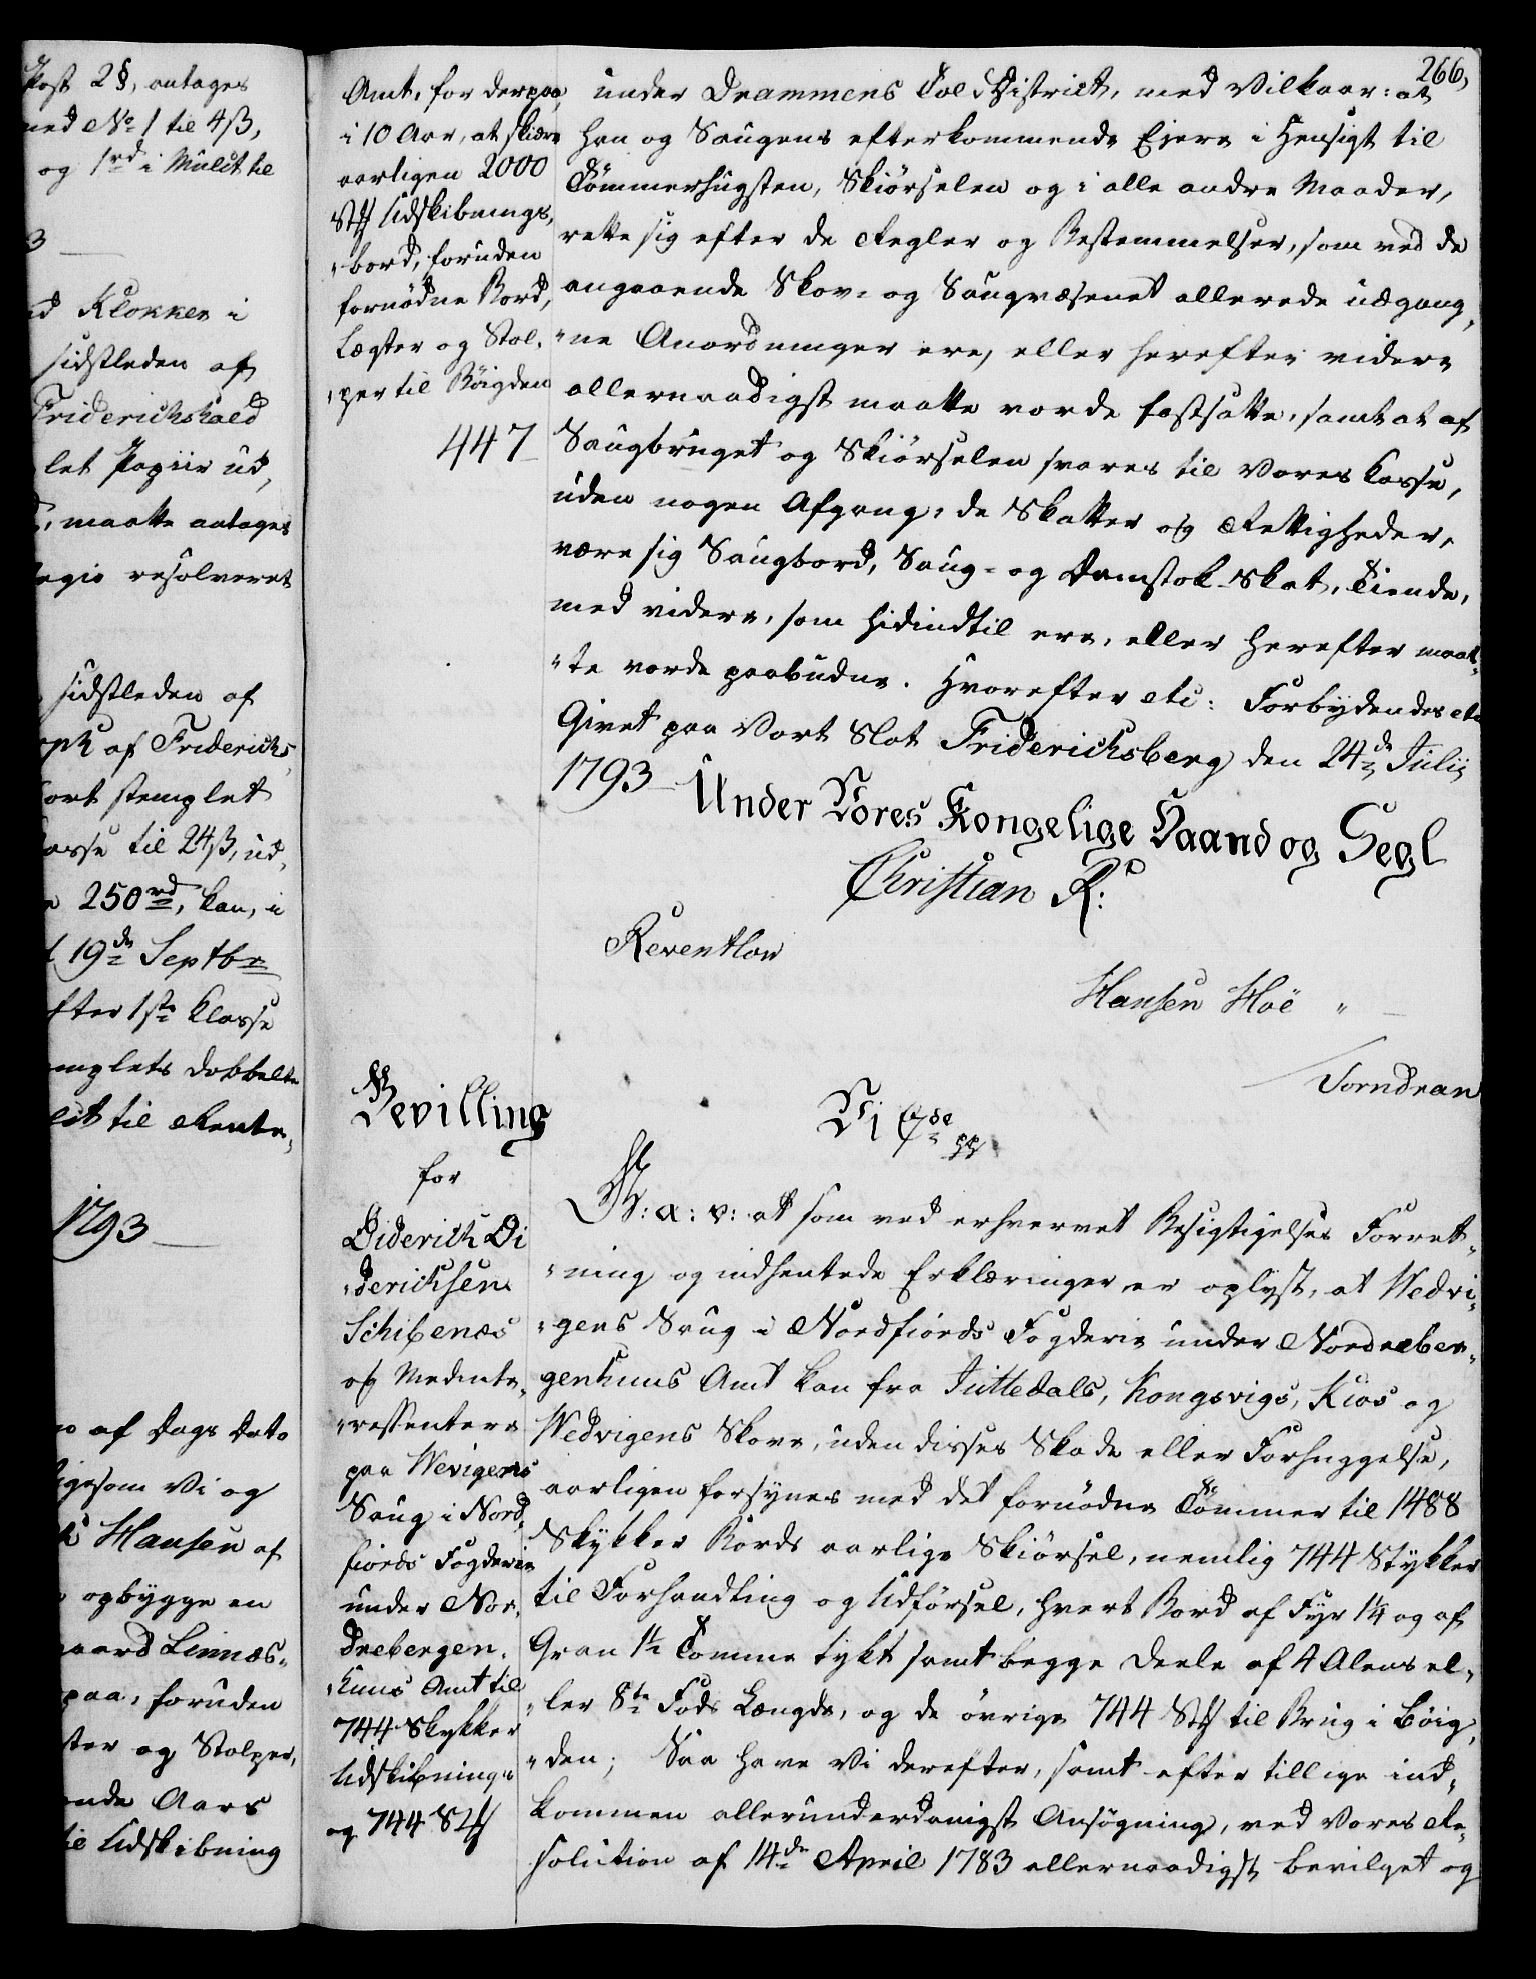 Post 2§, antages
med No 1 til 4ß,
og 1rd i Mulct til
3
Klokker i
sidstleden af
Friderichshald
let Papiir ud,
maatte antages
resolveret
sidstleden af
af Friderichs
fort stemplet
til 24ß, ud,
250rd, kan, i
19de Septbr
efter 1ste Classe
dobbelte
til Rente,
1793
af Dags Dato
ligesom Vi og
Hansen af
opbygge en
Gaard Linnæs,
paa, foruden
og Stolper,
Aars
til Udskibning
266,
Amt, for derpaa
i 10 Aar, at skiære
aarligen 2000
Stk Udskibnings,
"bord, foruden
fornødne Bord,
Lægter og Stol,
"per til Bøigden
447
under Drammens Told District, med Vilkaar: at
han og Saugens efterkommende Ejere i Hensigt til
Tømmerhugsten, Skiørselen og i alle andre Maader,
rette sig efter de Regler og Bestemmelser, som ved de
angaaende Skov- og Saugvæsenet allerede udgang,
"ne Anordninger ere, eller herefter videre
allernaadigst maatte vorde fastsatte, samt at af
Saugbruget og Skiørselen svares til Vores Casse,
uden nogen Afgang, de Skatter og Rettigheder,
være sig Saugbord, Saug- og Damstok-Skat, Tiende,
med videre, som hidindtil ere, eller herefter maat,
"te vorde paabudne. Hvorefter etc: Forbydendes etc
Givet paa Vort Slot Friderichsberg den 24de Julii
1793 - Under Vores Kongelige Haand og Segl
Christian R:
Reventlow
Hansen Hoë "
Torndran
Bevilling
for
Diderich Di
"derichsen
Schibenæs
og Medinte,
"ressentere
paa Wevigens
Saug i Nord,
fiords Fogderie
under Nor,
drebergen,
"huus Amt til
744 Stykker
Udskibnings
og 744 Stk
Vi C 7de pp
G: a: v: at som ved erhvervet Besigtigelses Forret,
"ning og indhentede Erklæringer er oplyst, at Wedvi,
"gens Saug i Nordfiords Fogderie under Nordreber,
genhuus Amt kan fra Juttedals, Kongsvigs, Kios og
Wedvigens Skove, uden disses Skade eller Forhuggelse,
aarligen forsynes med det fornødne Tømmer til 1488
Stykker Bords aarlige Skiørsel, nemlig 744 Stykker
til Forhandling og Udførsel, hvert Bord af Fyr 1¼ og af
Gran 1½ Tomme tykt samt begge Deele af 4 Alens el,
"ler 8te Fods Længde, og de øvrige 744 Stk til Brug i Bøig,
"den; Saa have Vi derefter, samt efter tillige ind,
kommen allerunderdanigst Ansøgning, ved Vores Re,
solution af 14de April 1783 allernaadigst bevilget og